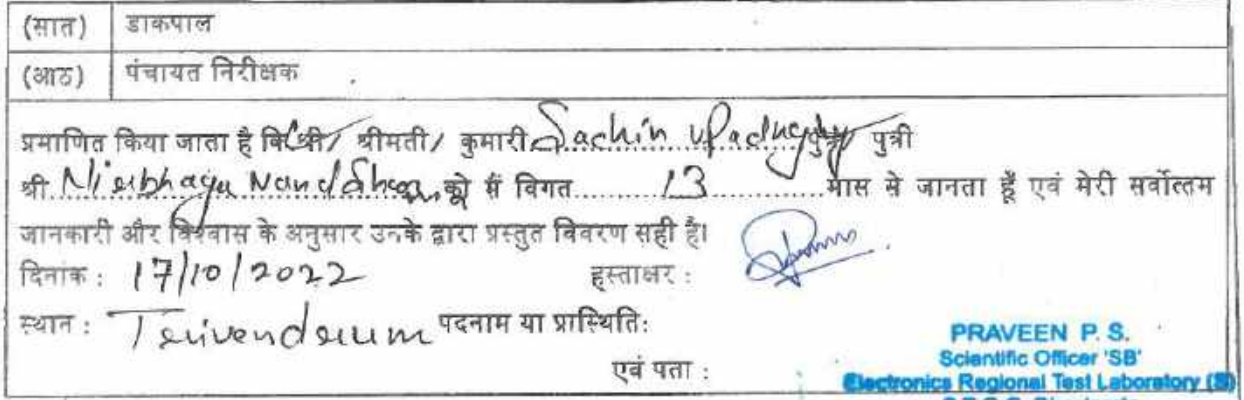 (सात) डाकपाल
(आठ) पंचायत निरीक्षक
प्रमाणित किया जाता है कि श्री/ श्रीमती/ कुमारी Sachin Upadhyay पुत्र/ पुत्री
श्री Nirbhaya Nand को मैं विगत 13 मास से जानता हूँ एवं मेरी सर्वोत्तम
जानकारी और विश्वास के अनुसार उनके द्वारा प्रस्तुत विवरण सही है।
दिनांक : 17/10/2022 हस्ताक्षर :
स्थान : Trivendrum पदनाम या प्रास्थिति:
एवं पता :
PRAVEEN P. S.
Scientific Officer 'SB'
Electronics Regional Test Laboratory (S)